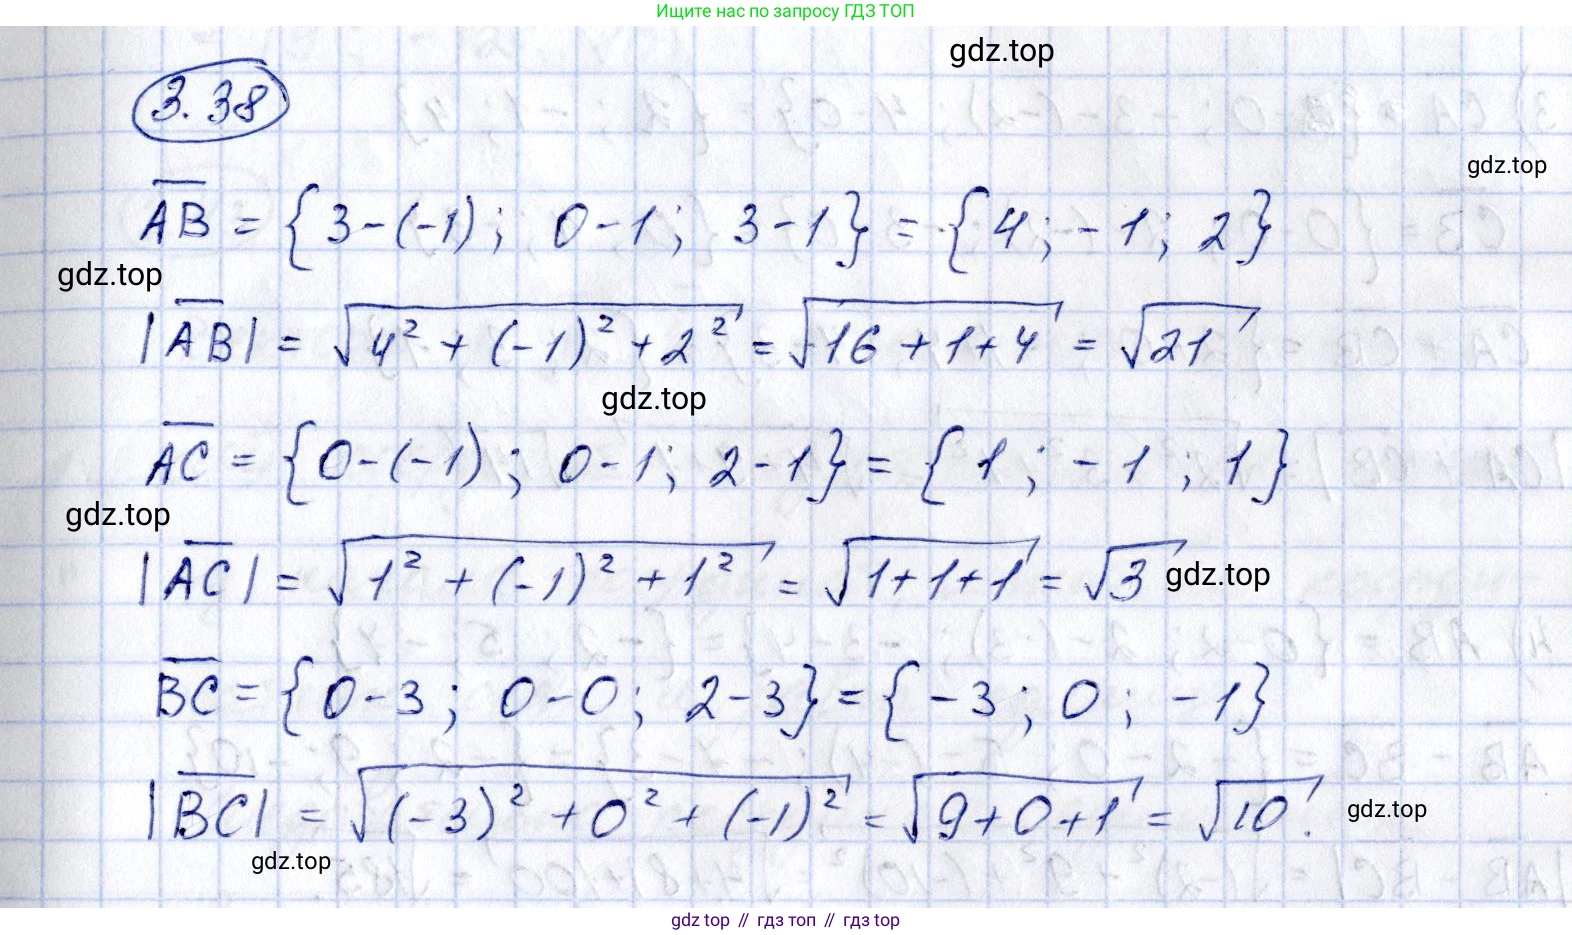 Ищите нас по запросу ГДЗ ТОП
gdz.top
3.38
gdz.top
AB = {3-(-1); 0-1; 3-1} = {4; -1; 2}
gdz.top
|AB| = √(4² + (-1)² + 2²) = √(16 + 1 + 4) = √21
gdz.top
AC = {0-(-1); 0-1; 2-1} = {1; -1; 1}
gdz.top
|AC| = √(1² + (-1)² + 1²) = √(1+1+1) = √3
gdz.top
BC = {0-3; 0-0; 2-3} = {-3; 0; -1}
|BC| = √((-3)² + 0² + (-1)²) = √(9+0+1) = √10.
gdz.top
gdz.top
gdz top // гдз топ // гдз top